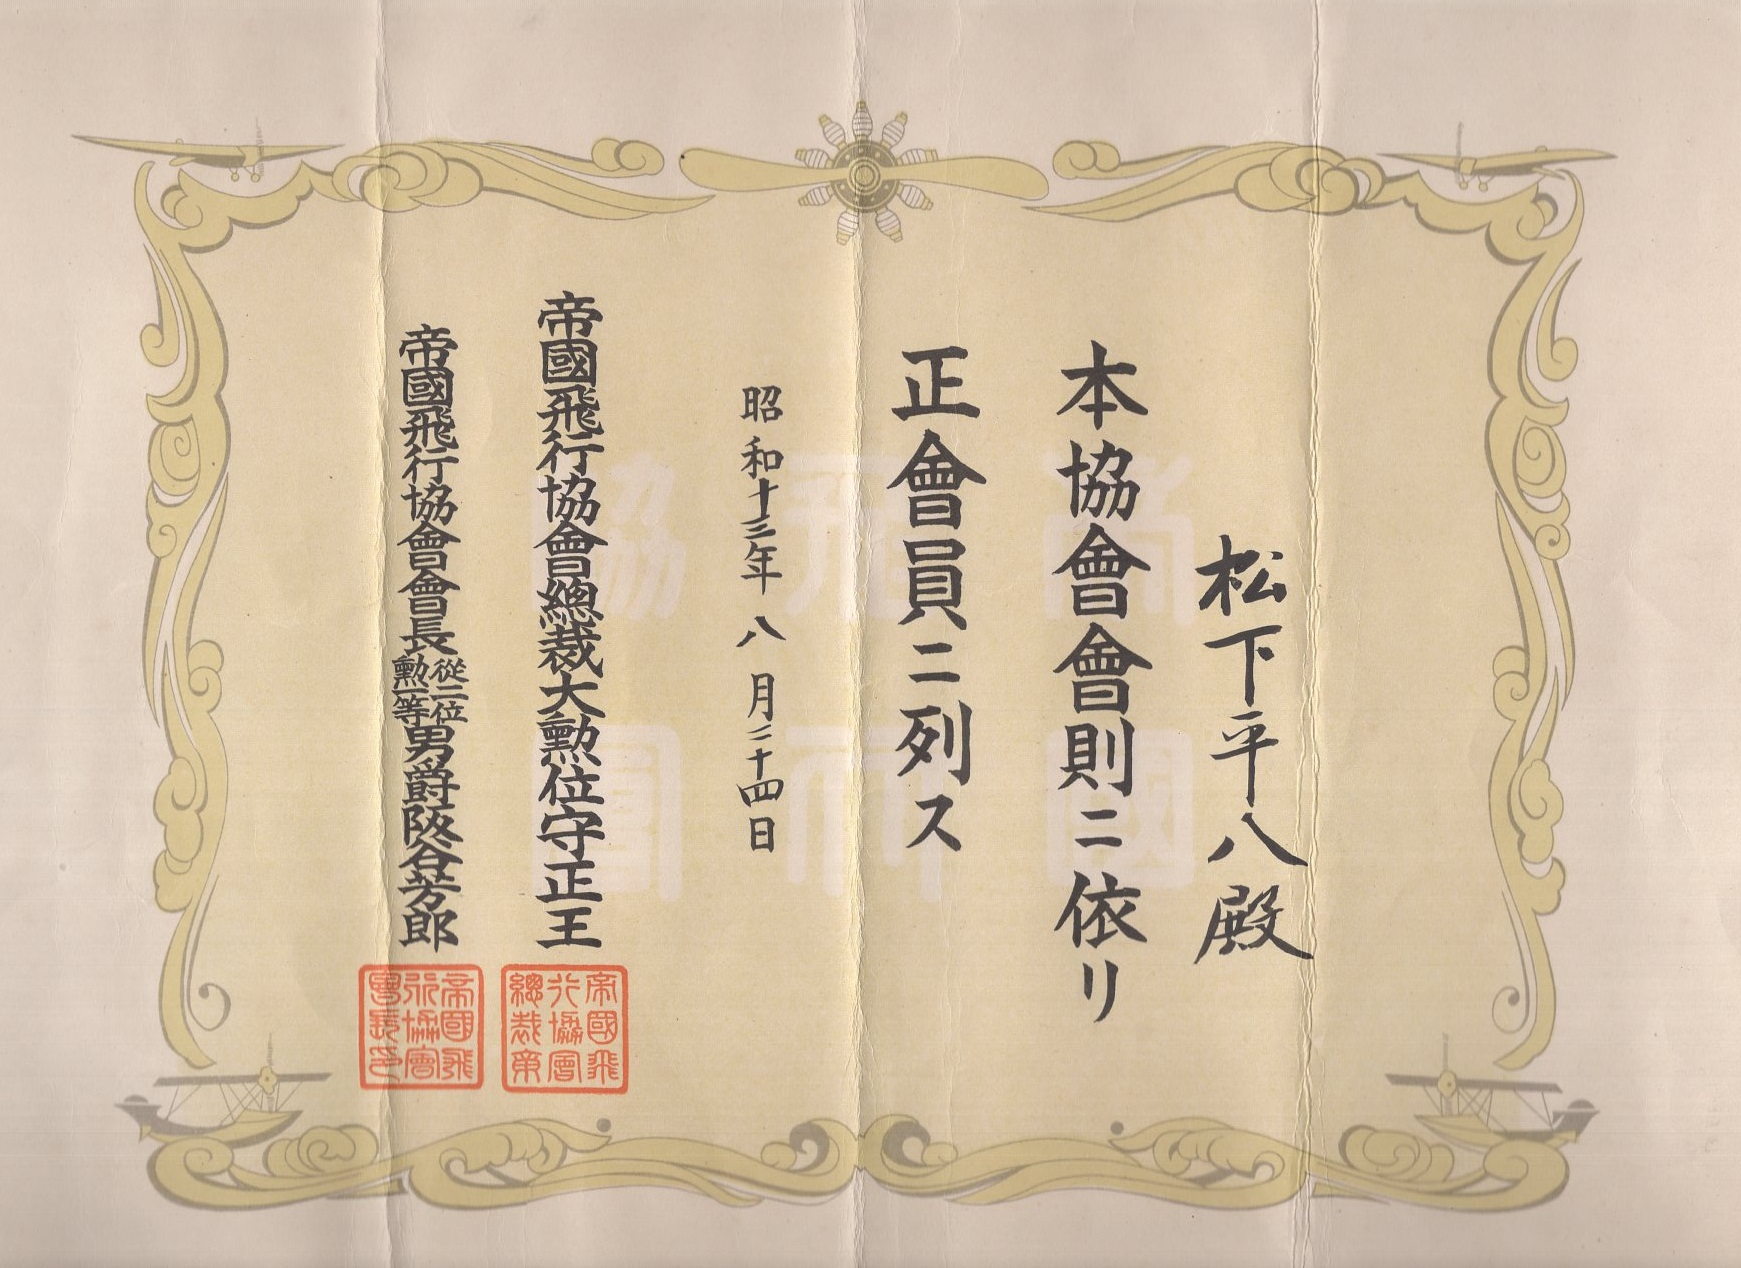 松下平八殿
本協會會則ニ依リ
正會員ニ列ス
昭和十三年八月二十四日
帝國飛行協會總裁大勲位守正王
帝國飛行協會總裁章
帝國飛行協會會長從二位勲一等男爵阪谷芳郎
帝國飛行協會會長印
帝國飛行協會